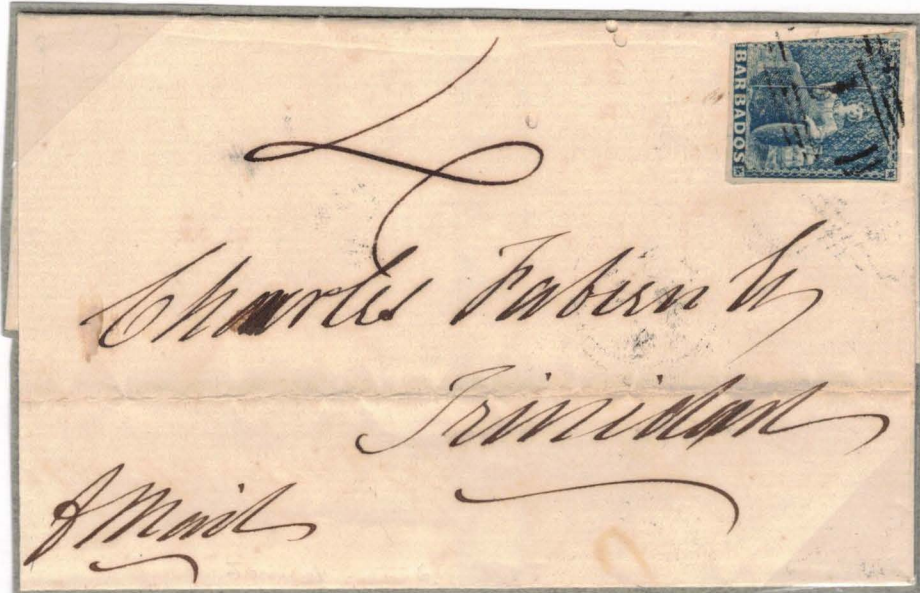 BARBADOS
Charles Fabien
Trinidad
Mail